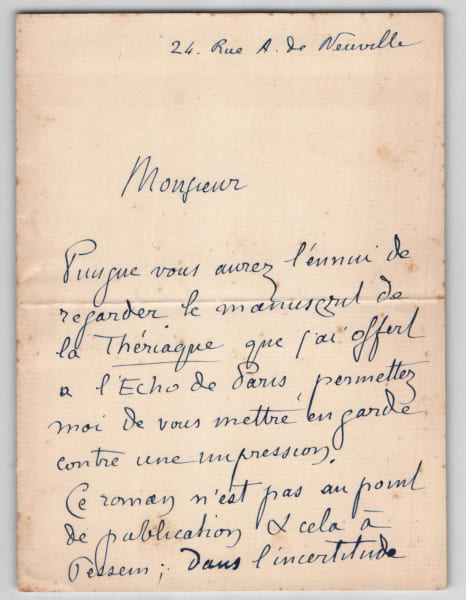 24. Rue A. de Neuville
Monsieur
Puisque vous aurez l'ennui de
regarder le manuscrit de
la Thériaque que j'ai offert
a l'Echo de Paris, permettez
moi de vous mettre en garde
contre une impression.
Ce roman n'est pas au point
de publication & cela à
dessein; dans l'incertitude